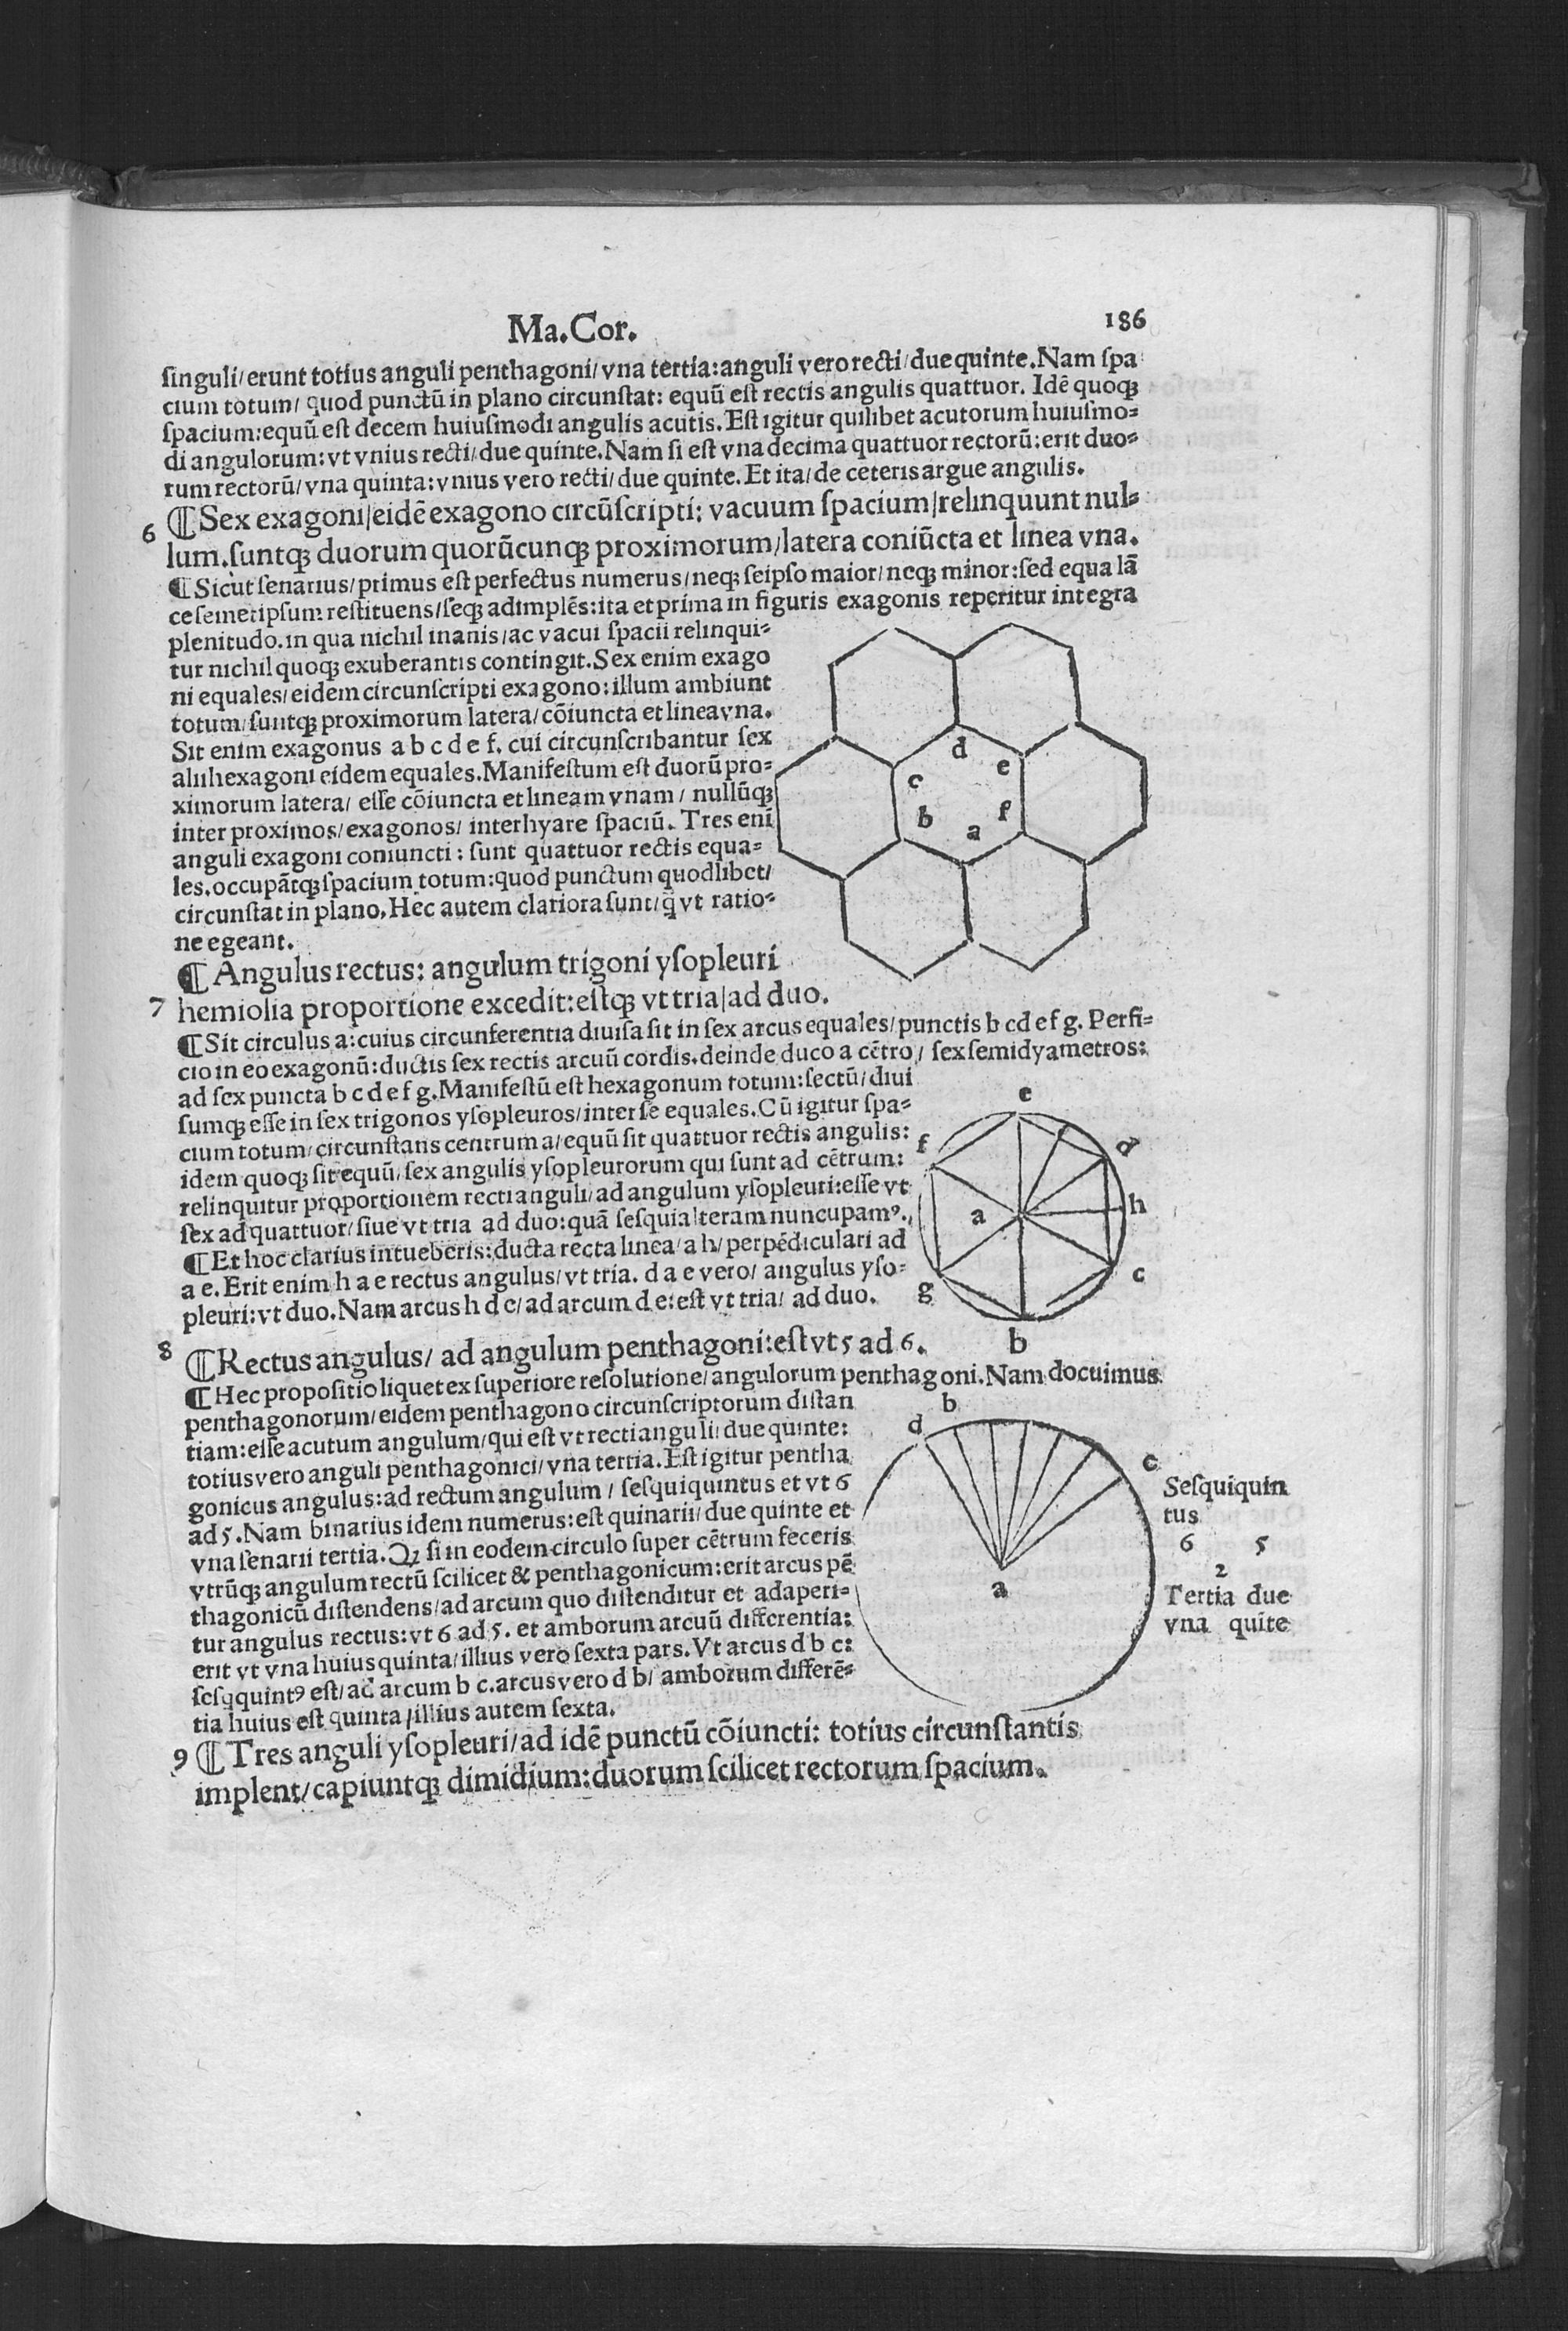 Ma.Cor.
186
singuli/erunt totius anguli penthagoni/vna tertia:anguli vero recti/due quinte.Nam spa
cium totum/ quod punctū in plano circunstat: equū est rectis angulis quattuor. Idē quoqꝫ
spacium:equū est decem huiusmodi angulis acutis.Est igitur quilibet acutorum huiusmo⸗
di angulorum:vt vnius recti/due quinte.Nam si est vna decima quattuor rectorū:erit duo⸗
rum rectorū/vna quinta:vnius vero recti/due quinte.Et ita/de ceteris argue angulis.
6
⸿Sex exagoni/eidē exagono circūscripti: vacuum spacium/relinquunt nul⸗
lum.suntqꝫ duorum quorūcunqꝫ proximorum/latera coniūcta et linea vna.
⸿Sicut senarius/primus est perfectus numerus/neqꝫ seipso maior/neqꝫ minor:sed equa lā
ce semetipsum restituens/seqꝫ adimplēs:ita et prima in figuris exagonis reperitur integra
plenitudo.in qua nichil inanis/ac vacui spacii relinqui⸗
tur nichil quoqꝫ exuberantis contingit.Sex enim exago
ni equales/eidem circunscripti exagono:illum ambiunt
totum/suntqꝫ proximorum latera/cōiuncta et linea vna.
Sit enim exagonus a b c d e f. cui circunscribantur sex
alii hexagoni eidem equales.Manifestum est duorū pro⸗
ximorum latera/ esse cōiuncta et lineam vnam/ nullūqꝫ
inter proximos/exagonos/ interhyare spaciū. Tres eni
anguli exagoni coniuncti : sunt quattuor rectis equa⸗
les.occupātqꝫ spacium totum:quod punctum quodlibet/
circunstat in plano.Hec autem clariora sunt/q̄ vt ratio⸗
ne egeant.
d
e
c
b
f
a
⸿Angulus rectus: angulum trigoni ysopleuri
7
hemiolia proportione excedit:estqꝫ vt tria/ad duo.
⸿Sit circulus a:cuius circunferentia diuisa sit in sex arcus equales/punctis b c d e f g. Perfi⸗
cio in eo exagonū:ductis sex rectis arcuū cordis.deinde duco a cētro/ sex semidyametros:
ad sex puncta b c d e f g.Manifestū est hexagonum totum:sectū/diui
sumqꝫ esse in sex trigonos ysopleuros/inter se equales.Cū igitur spa⸗
cium totum/circunstans centrum a/equū sit quattuor rectis angulis:
idem quoqꝫ sit equū/sex angulis ysopleurorum qui sunt ad cētrum:
relinquitur proportionem recti anguli/ad angulum ysopleuri:esse vt
sex ad quattuor/siue vt tria ad duo:quā sesquialteram nuncupamꝰ.
⸿Et hoc clarius intueberis:ducta recta linea/a h/perpēdiculari ad
a e.Erit enim h a e rectus angulus/vt tria. d a e vero/ angulus yso⸗
pleuri:vt duo.Nam arcus h d e/ad arcum d e:est vt tria/ ad duo.
e
f
d
a
h
g
c
b
8
⸿Rectus angulus/ ad angulum penthagoni:est vt 5 ad 6.
⸿Hec propositio liquet ex superiore resolutione/angulorum penthagoni.Nam docuimus
penthagonorum/eidem penthagono circunscriptorum distan
tiam:esse acutum angulum/qui est vt recti anguli/due quinte:
totius vero anguli penthagonici/vna tertia.Est igitur pentha
gonicus angulus:ad rectum angulum/ sesquiquintus et vt 6
ad 5.Nam binarius idem numerus:est quinarii/due quinte et
vna senarii tertia.Qꝫ si in eodem circulo super cētrum feceris
vtrūqꝫ angulum rectū scilicet & penthagonicum:erit arcus pē
thagonicū distendens/ad arcum quo distenditur et adaperi⸗
tur angulus rectus:vt 6 ad 5. et amborum arcuū differentia:
erit vt vna huius quinta/illius vero sexta pars.Vt arcus d b c:
sesqquintꝰ est/ad arcum b c.arcus vero d b/ amborum differē⸗
tia huius est quinta/illius autem sexta.
b
d
c
a
Sesquiquin
tus
6 5
2
Tertia due
vna quīte
9
⸿Tres anguli ysopleuri/ad idē punctū cōiuncti: totius circunstantis
implent/capiuntqꝫ dimidium:duorum scilicet rectorum spacium.